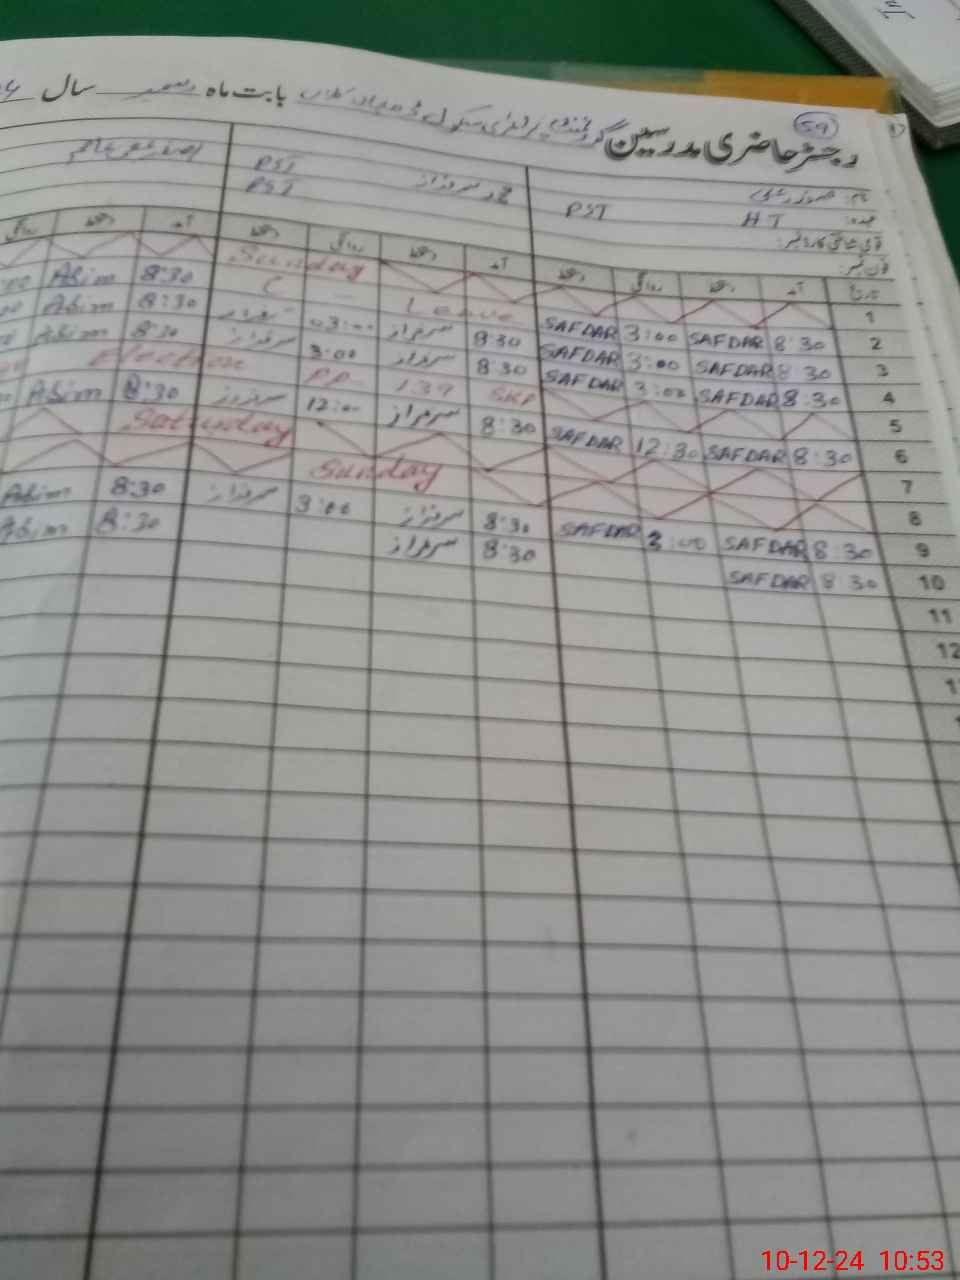 59
رجسٹر حاضری مدرسین گورنمنٹ پرائمری سکول بابت ماہ دسمبر سال
نام:
عہدہ: HT PST
PST
PST
قومی شناختی کارڈ نمبر:
فون نمبر:
تاریخ آمد دستخط روانگی دستخط آمد دستخط روانگی دستخط آمد دستخط روانگی
1 Sunday
2 8:30 SAFDAR 3:00 SAFDAR C Leave 8:30 Asim
3 8:30 SAFDAR 3:00 SAFDAR 8:30 سرفراز 03:00 سرفراز 8:30 Asim
4 8:30 SAFDAR 3:00 SAFDAR 8:30 سرفراز 3:00 سرفراز 8:30 Asim
5 Election PP 139 SKP
6 8:30 SAFDAR 12:30 SAFDAR 8:30 سرفراز 12:00 سرفراز 8:30 Asim
7 Saturday
8 Sunday
9 8:30 SAFDAR 3:00 SAFDAR 8:30 سرفراز 3:00 سرفراز 8:30 Asim
10 8:30 SAFDAR 8:30 سرفراز 8:30 Asim
11
12
10-12-24 10:53